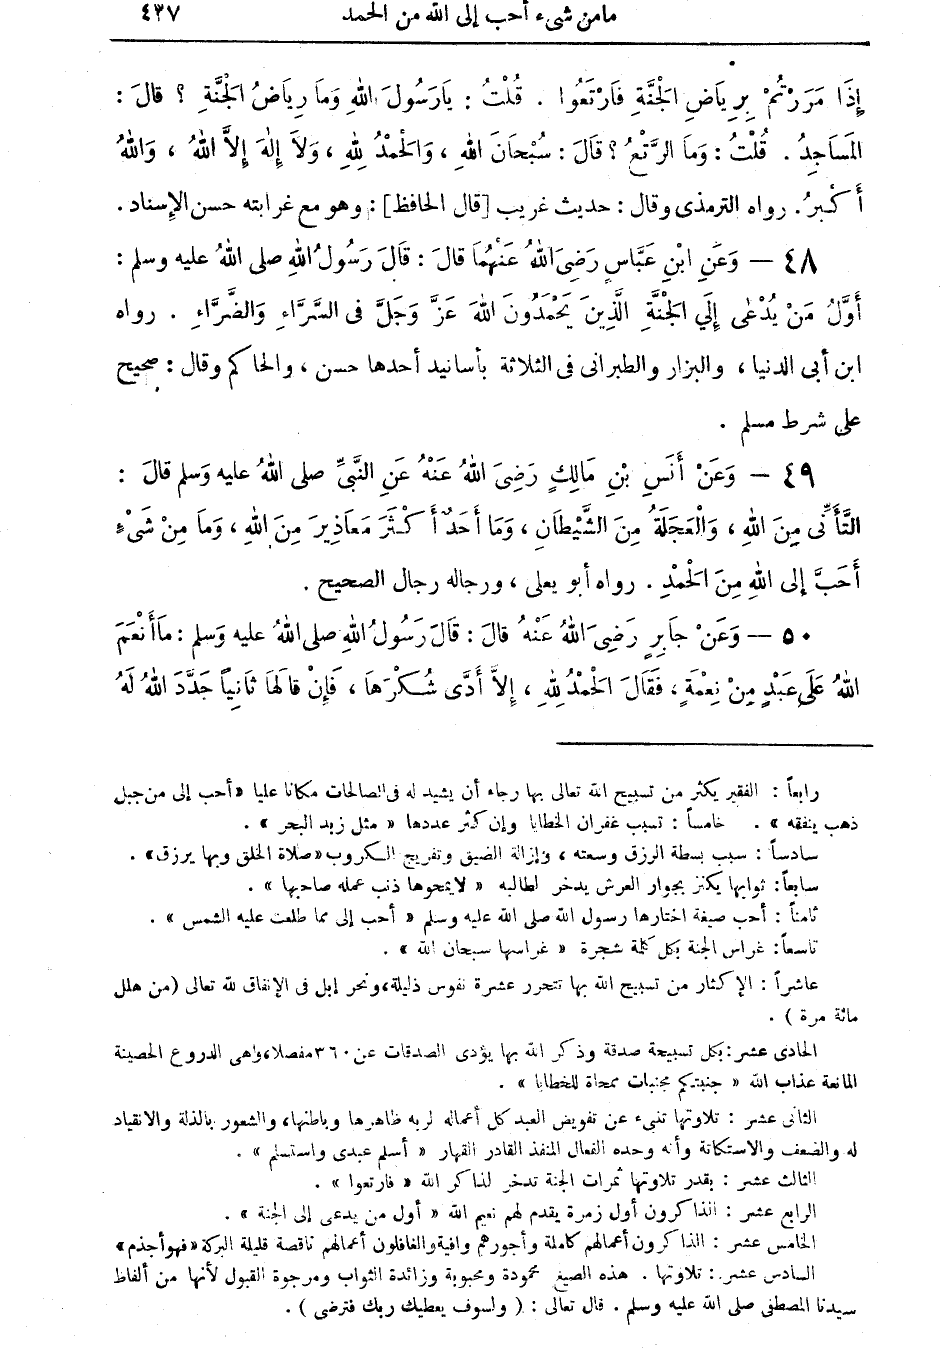 مامن شىء أحب إلى الله من الحمد ٤٣٧
إِذَا مَرَرْتُمْ بِرِيَاضِ الْجَنَّةِ فَارْتَعُوا . قُلْتُ : يَارَسُولَ اللهِ وَمَا رِيَاضُ الْجَنَّةِ ؟ قالَ :
المَسَاجِدُ . قُلْتُ : وَمَا الرَّتْعُ ؟ قالَ : سُبْحَانَ اللهِ ، وَالْحَمْدُ لِلهِ ، وَلاَ إِلهَ إِلاَّ اللهُ ، وَاللهُ
أَكْبَرُ. رواه الترمذى وقال : حديث غريب [قال الحافظ] : وهو مع غرابته حسن الإسناد .
٤٨ — وَعَنِ ابْنِ عَبَّاسٍ رَضِىَ اللهُ عَنْهُمَا قالَ : قَالَ رَسُولُ اللهِ صلى اللهُ عليه وسلم :
أَوَّلُ مَنْ يُدْعَى إِلَي الْجَنَّةِ الَّذِينَ يَحْمَدُونَ اللهَ عَزَّ وَجَلَّ فى السَّرَّاءِ وَالضَّرَّاءِ . رواه
ابن أبى الدنيا ، والبزار والطبرانى فى الثلاثة بأسانيد أحدها حسن ، والحاكم وقال : صحيح
على شرط مسلم .
٤٩ — وَعَنْ أَنَسِ بْنِ مَالِكٍ رَضِىَ اللهُ عَنْهُ عَنِ النَّبِىِّ صلى اللهُ عليه وَسلم قالَ :
التَّأَنِّى مِنَ اللهِ ، وَالْعَجَلَةُ مِنَ الشَّيْطَانِ ، وَمَا أَحَدٌ أَكْثَرَ مَعَاذِيرَ مِنَ اللهِ ، وَمَا مِنْ شَىْءٍ
أَحَبَّ إلى اللهِ مِنَ الْحَمْدِ . رواه أبو يعلى ، ورجاله رجال الصحيح .
٥٠ — وَعَنْ جابِرٍ رَضِىَ اللهُ عَنْهُ قالَ : قَالَ رَسُولُ اللهِ صلى اللهُ عليه وَسلم : مَاأَنْعَمَ
اللهُ عَلَى عَبْدٍ مِنْ نِعْمَةٍ ، فَقَالَ الْحَمْدُ لِلهِ ، إِلاَّ أَدَّى شُكْرَهَا ، فَإِنْ قالهَا ثَانِياً جَدَّدَ اللهُ لَهُ
رابعاً : الفقير يكثر من تسبيح الله تعالى بها رجاء أن يشيد له فى الصالحات مكانا عليا « أحب إلى من جبل
ذهب ينفقه » . خامساً : تسبب غفران الخطايا وإن كثر عددها « مثل زبد البحر » .
سادساً : سبب بسطة الرزق وسعته ، وإزالة الضيق وتفريج الكروب « صلاة الخلق وبها يرزق» .
سابعاً: ثوابها يكنز بجوار العرش يدخر لطالبه « لا يمحوها ذنب عمله صاحبها » .
ثامناً : أحب صيغة اختارها رسول الله صلى الله عليه وسلم « أحب إلى مما طلعت عليه الشمس » .
تاسعاً: غراس الجنة بكل كلمة شجرة « غراسها سبحان الله » .
عاشراً : الإكثار من تسبيح الله بها تتحرر عشرة نفوس ذليلة،ونحر إبل فى الإنفاق لله تعالى (من هلل
مائة مرة ) .
الحادى عشر : بكل تسبيحة صدقة وذكر الله بها يؤدى الصدقات عن ٣٦٠ مفصلا، وهى الدروع الحصينة
المانعة عذاب الله « جنبتكم مجنبات ممحاة للخطايا » .
الثانى عشر : تلاوتها تنبىء عن تفويض العبد كل أعماله لربه ظاهرها وباطنها، والشعور بالذلة والانقياد
له والضعف والاستكانة وأنه وحده الفعال المنفذ القادر القهار « أسلم عبدى واستسلم » .
الثالث عشر : بقدر تلاوتها ثمرات الجنة تدخر لذاكر الله « فارتعوا » .
الرابع عشر : الذاكرون أول زمرة يقدم لهم نعيم الله « أول من يدعى إلى الجنة » .
الخامس عشر : الذاكرون أعمالهم كاملة وأجورهم وافية والغافلون أعمالهم ناقصة قليلة البركة «فهو أجذم»
السادس عشر : تلاوتها . هذه الصيغ محمودة ومحبوبة وزائدة الثواب ومرجوة القبول لأنها من ألفاظ
سيدنا المصطفى صلى الله عليه وسلم . قال تعالى : ( ولسوف يعطيك ربك فترضى ) .